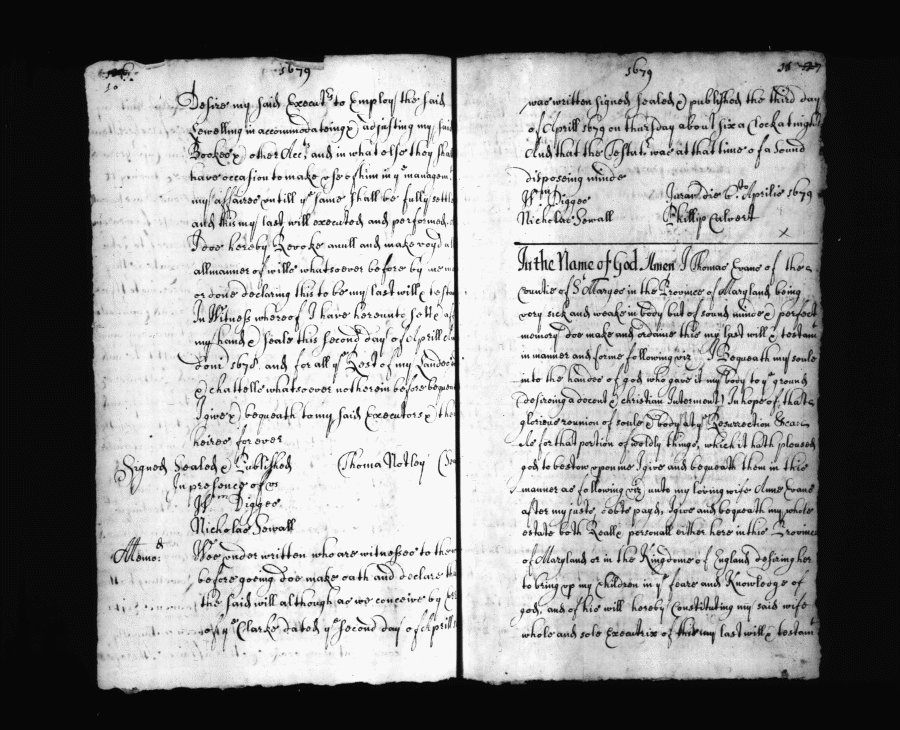 10
1679
Desire my said Execut:rs to Employ the said
Lewelling in accommodateing & adjusting my said
Bookes & other Acc:ts and in what else they shall
have occasion to make use of him in ye managem
my affaires untill ye same shall be fully settl
and this my last will executed and performed
I doe hereby Revoke anull and make voyd al
allmanner of wills whatsoever before by me m
or done declaring this to be my last will & testa
In Witness whereof I have hereunto sett & af
my hand & seale this second day of Aprill
doni 1678. and for all ye Rest of my Landes
& chattells whatsoever not herein before bequea
I give & bequeath to my said Executors & the
heires for ever
Signed Sealed & Published Thoma Notley
In presence of us
Wm Digges
Nicholas Sewall
Memo:d Wee under written who are witnesses to the
before going doe make oath and declare th
the said will although as we conceive by
of ye Clarke dated ye second day of Aprill
1679
was written signed sealed & published the third day
of Aprill 1679 on thursday about six a Clock at night
And that the Testat:r was at that time of a Sound
disposeing minde
Wm Digges Jurat die 6to Aprilis 1679
Nicholas Sewall Phillip Calvert
In the Name of God Amen I Thomas Evans of the
Countie of St Maryes in the Province of Maryland being
very sick and weake in body but of sound minde & perfect
memory doe make and ordaine this my last will & testam:t
in manner and forme following viz I Bequeath my soule
into the hands of god who gave it my body to ye ground
(desireing a decent & christian Interment) In hope of that
glorious reunion of soule & body at ye Resurrection
As for that portion of woldly things, which it hath pleased
god to bestow upon me I give and bequeath them in this
manner as following viz unto my loving wife Anne Evans
after my justs debts payd, I give and bequeath my whole
estate both Reall & personall either here in this Province
of Maryland or in the Kingdome of England desiring her
to bring up my Children in ye feare and Knowledge of
god, and of his will hereby Constituting my said wife
whole and sole Executrix of this my last will & testam:t